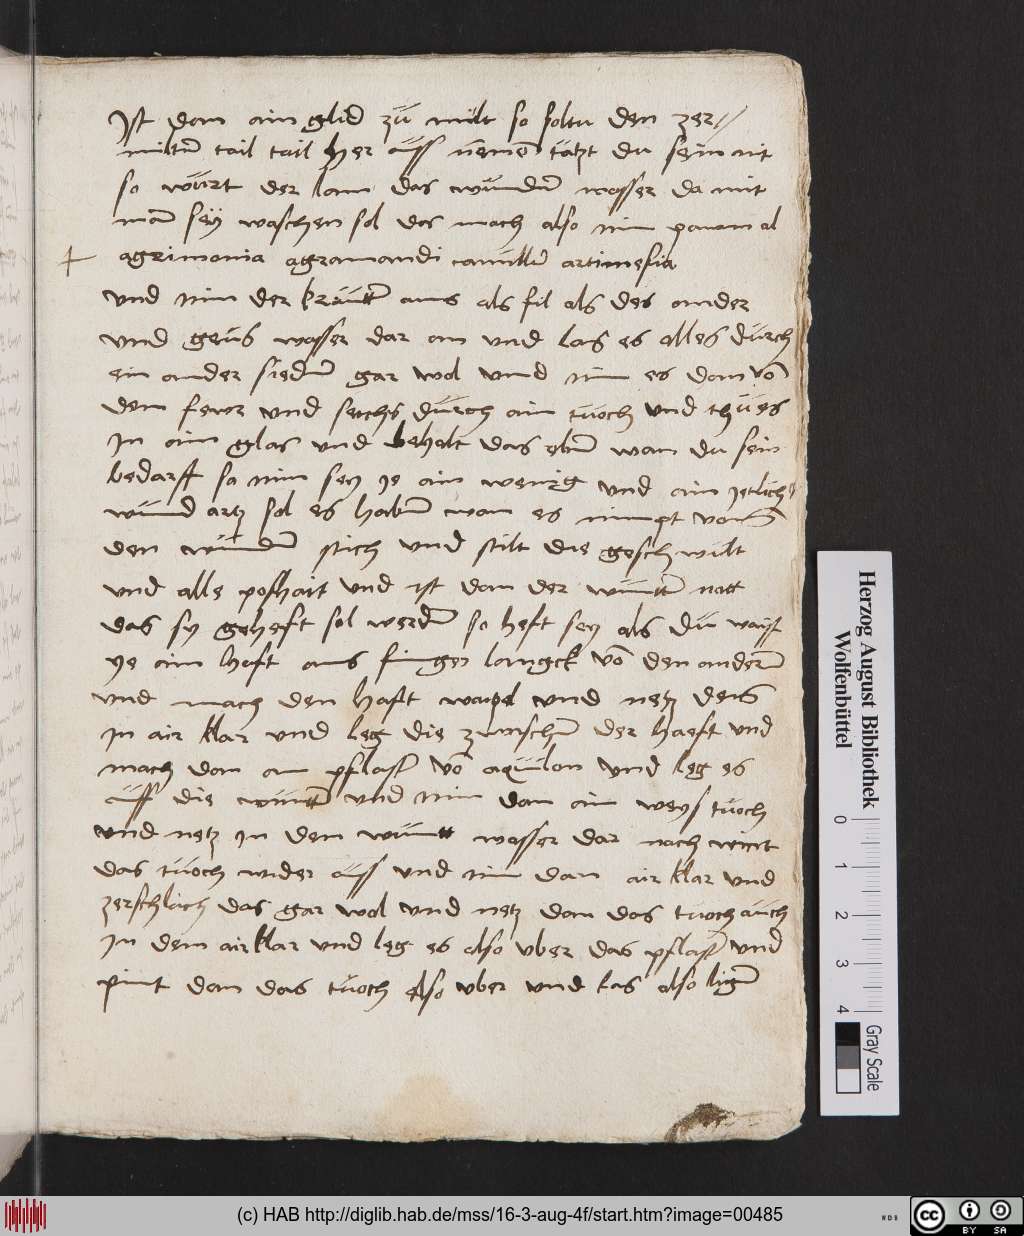 Ist dan ain glid zu mült so soltu den zer//
mültñ tail tail her auss nemen tätzt du sein nit
so würt der lam das wundñ wasser da mit
man sey waschen sol das mach also nim pawm al
agrimonia agramandi camillñ artimesia
vnd nim der kräuttñ ains als fil als des ander
vnd geus wasser dar an vnd las es alles durch
ein ander siedñ gar wol vnd nim es dan võ
dem fewr vnd seichs durch ain tuoch vnd thu es
in ain glas vnd behalt das ebñ wan du sein
bedarff so nim sey ie ain wenig vnd ain ietlich
wund artz sol es habñ wan es nimpt von
den wundñ stich vnd stilt die geschwilt
vnd alle poshait vnd ist dan der wuntñ nott
das sy geheft sol werdñ so heft sey als du waist
ye ain haft ains finges langck võ den anderñ
vnd mach den haft waipel vnd netz deñ
in air klar vnd leg die zwischñ der haeft vnd
mach dan ain pflastr võ aquilon vnd leg es
auff die wuntñ vnd nim dan ain weys tuoch
vnd netz in dem wuntt wasser dar nach wint
das tuoch wider auss vnd nim dan air klar vnd
zerschlach das gar wol vnd netz dan das tuoch auch
in dem airklar vnd leg es also vber das pflastr vnd
pint dan das tuoch also vber vnd las also ligñ
Herzog August Bibliothek
Wolfenbüttel
0 1 2 3 4
Gray Scale
(c) HAB http://diglib.hab.de/mss/16-3-aug-4f/start.htm?image=00485
WDB
cc BY SA